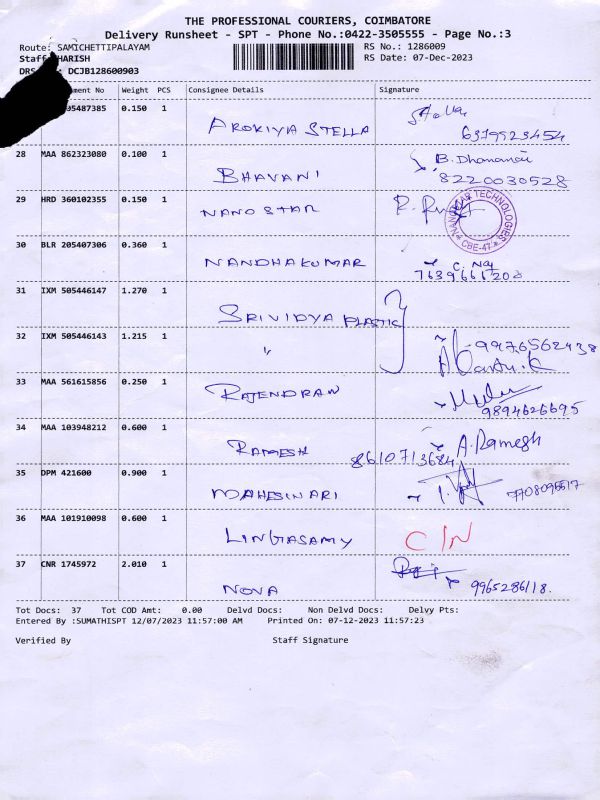 THE PROFESSIONAL COURIERS, COIMBATORE
Delivery Runsheet - SPT - Phone No.:0422-3505555 - Page No.:3
Route: SAMICHETTIPALAYAM RS No.: 1286009
Staff HARISH RS Date: 07-Dec-2023
DRS : DCJB128600903
ment No Weight PCS Consignee Details Signature
05487385 0.150 1 AROKIYA STELLA Stella 6379523454
28 MAA 862323080 0.100 1 BHAVANI B. 8220030528
29 HRD 360102355 0.150 1 NANO STAR TECHNOLOGIES CBE-47
30 BLR 205407306 0.360 1 NANDHAKUMAR
31 IXM 505446147 1.270 1 SRIVIDYA PLASTIC
32 IXM 505446143 1.215 1 " 9976562438
33 MAA 561615856 0.250 1 RAJENDRAN 9894626695
34 MAA 103948212 0.600 1 RAMESH 8610713684 A. Ramesh
35 DPM 421600 0.900 1
36 MAA 101910098 0.600 1 LINGASAMY C/N
37 CNR 1745972 2.010 1 NOVA
Tot Docs: 37 Tot COD Amt: 0.00 Delvd Docs: Non Delvd Docs: Delvy Pts:
Entered By :SUMATHISPT 12/07/2023 11:57:00 AM Printed On: 07-12-2023 11:57:23
Verified By Staff Signature